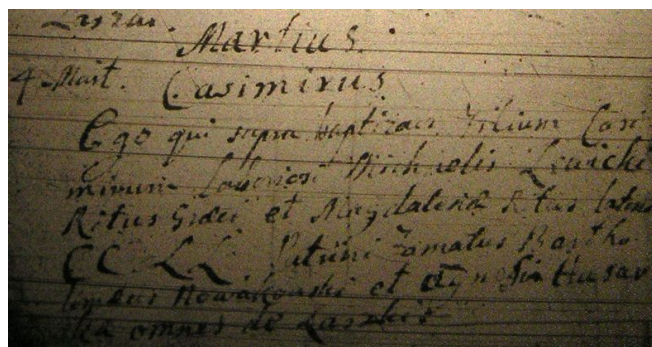 Martius.
4 Mart. Casimirus
Ego qui supra baptizavi Filium Casi
mirum Laboriosi Michaelis Lewicki
Ritus Graeci et Magdalena Ritus latini
CC. LL. Patrini Famatus Bartho
lomaeus Nowakowski et Agnesia Husar
ska omnes de Laszki